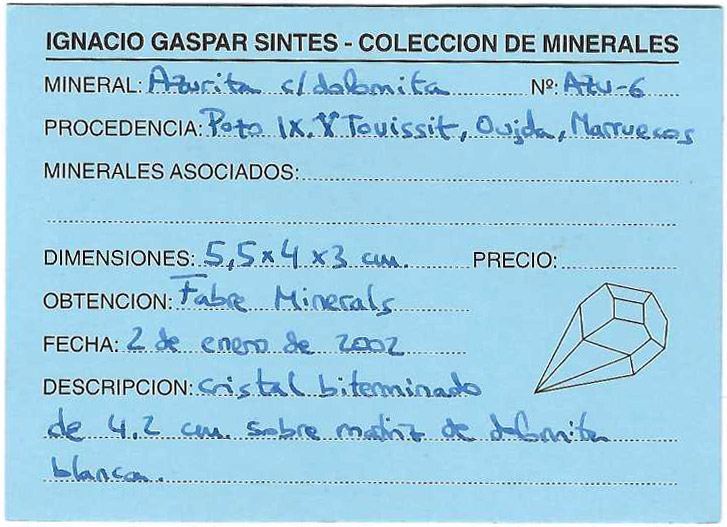 IGNACIO GASPAR SINTES - COLECCION DE MINERALES
MINERAL: Azurita c/dolomita Nº: AZU-6
PROCEDENCIA: Pozo IX. Touissit, Oujda, Marruecos
MINERALES ASOCIADOS:
DIMENSIONES: 5,5x4x3 cm. PRECIO:
OBTENCION: Fabre Minerals
FECHA: 2 de enero de 2002
DESCRIPCION: cristal biterminado
de 4.2 cm. sobre matriz de dolomita
blanca.